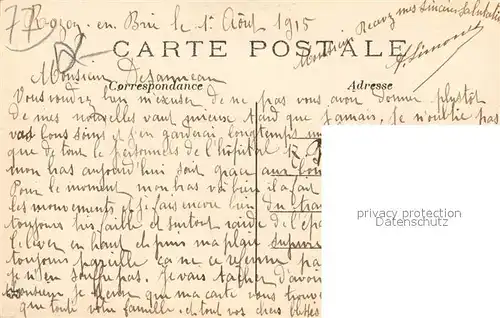 77
Rozoy en Brie le 1r Août 1915
Monsieur Recevez mes sincères salutations
A. Simon
CARTE POSTALE
Correspondance
Adresse
Monsieur
Vous voudrez bien m'excuser de ne pas vous avoir donner plustôt
de mes nouvelles vaut mieux tard que jamais, je n'oublie pas
vos bons soins et j'en garderai longtemps
que de tout le personnels de l'hôpital
mon bras aujourd'hui soit grace aux bons
Pour le moment mon bras va bien il a fait
les mouvements et je fais encore bien du
toujours plus faible et surtout raide de l'ép
l'élever en haut et puis ma plaie
toujours pareille ça ne se referme pas
je n'en souffre pas. Je vais tacher d'avoir
Monsieur je pense que ma carte vous trouve
que toute votre famille et tout vos chers blessés
privacy protection
Datenschutz